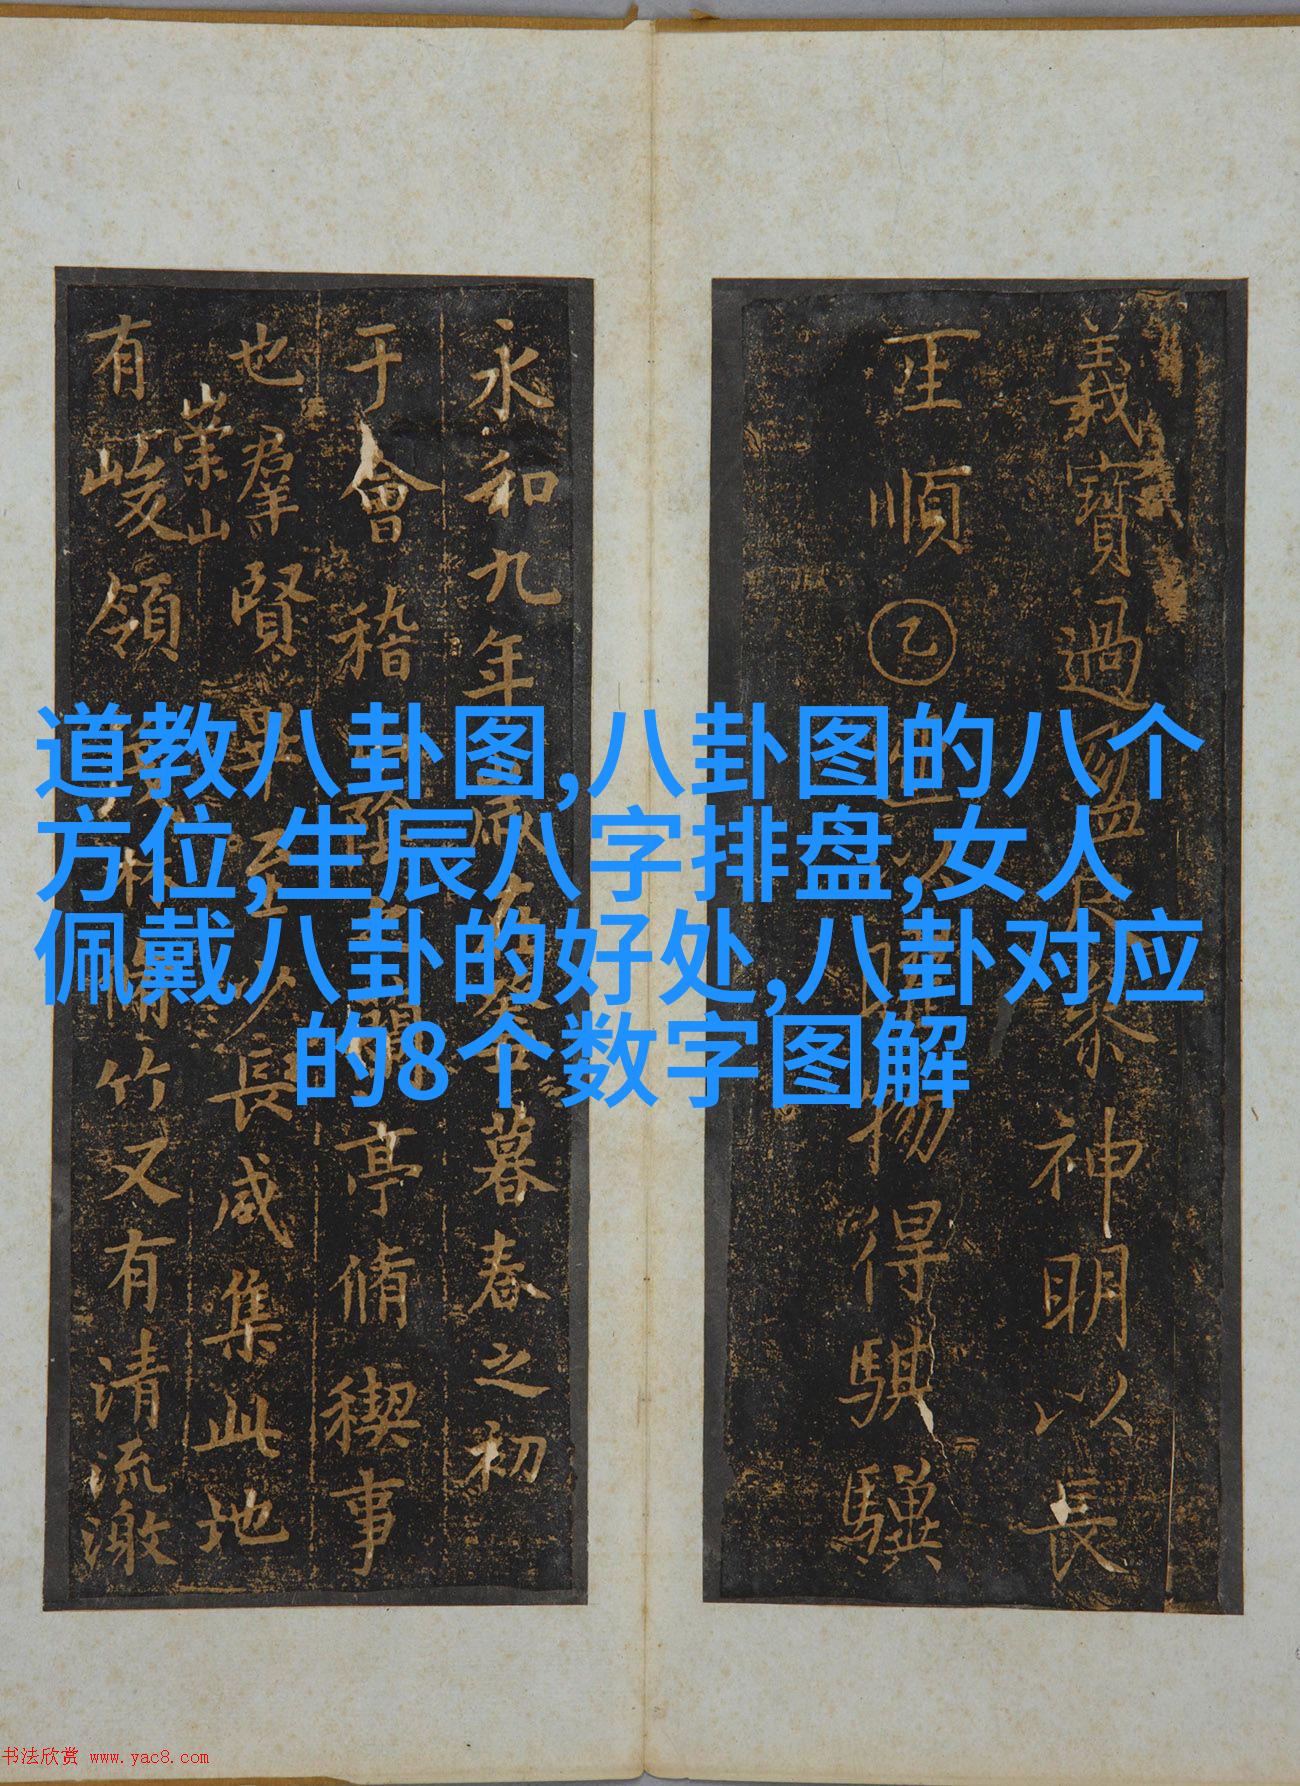 道教八卦图,八卦图的八个
方位,生辰八字排盘,女人
佩戴八卦的好处,八卦对应
的8个数字图解
義寶過神明以長
順乙得騏驥
永和九年暮春之初
于會稽亭脩禊事
也羣賢畢至少長咸集此地
有崇山峻領林竹又有清流激
书法欣赏 www.yac8.com